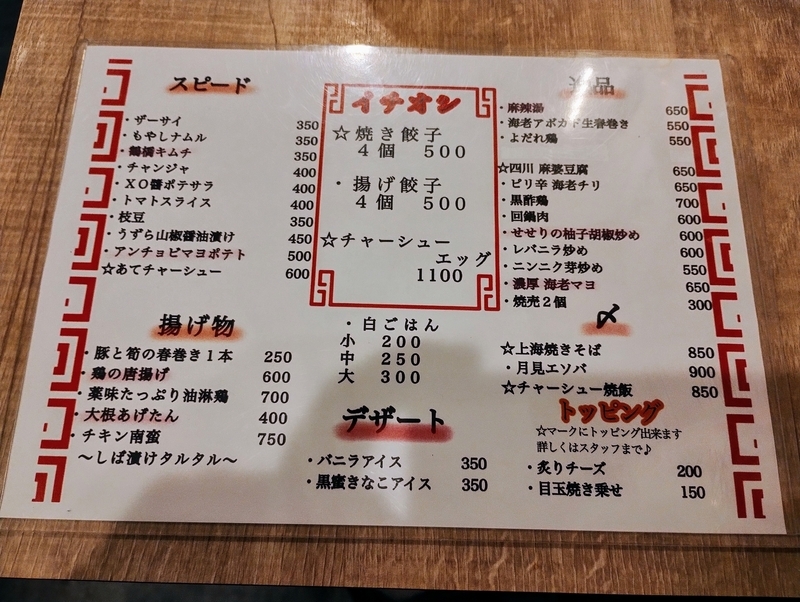 スピード
・ザーサイ 350
・もやしナムル 350
・鶴橋キムチ 350
・チャンジャ 400
・XO醤ポテサラ 400
・トマトスライス 400
・枝豆 350
・うずら山椒醤油漬け 450
・アンチョビマヨポテト 500
☆あてチャーシュー 600
揚げ物
・豚と筍の春巻き1本 250
・鶏の唐揚げ 600
・薬味たっぷり油淋鶏 700
・大根あげたん 400
・チキン南蛮 750
〜しば漬けタルタル〜
イチオシ
☆焼き餃子
4個 500
・揚げ餃子
4個 500
☆チャーシュー
エッグ
1100
・白ごはん
小 200
中 250
大 300
デザート
・バニラアイス 350
・黒蜜きなこアイス 350
品
・麻辣湯 650
・海老アボカド生春巻き 550
・よだれ鶏 550
☆四川 麻婆豆腐 650
・ピリ辛 海老チリ 650
・黒酢鶏 700
・回鍋肉 600
・せせりの柚子胡椒炒め 600
・レバニラ炒め 600
・ニンニク芽炒め 550
・濃厚 海老マヨ 650
・焼売2個 300
〆
☆上海焼きそば 850
・月見エソバ 900
☆チャーシュー焼飯 850
トッピング
☆マークにトッピング出来ます
詳しくはスタッフまで♪
・炙りチーズ 200
・目玉焼き乗せ 150